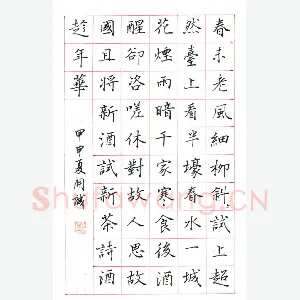 春未老風細柳斜試上超
然臺上看半壕春水一城
花煙雨暗千家寒食後酒
醒卻咨嗟休對故人思故
國且將新酒試新茶詩酒
趁年華
甲申夏
Shufawang.CN